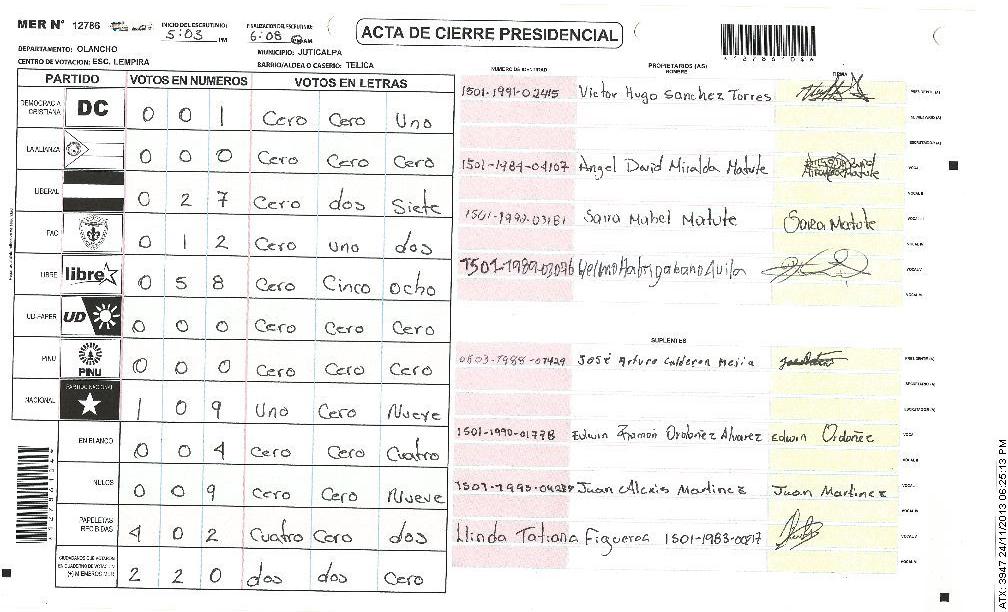 MER N° 12786 INICIO DEL ESCRUTINIO: 5:03 PM FINALIZACION DEL ESCRUTINIO: 6:08 AM
ACTA DE CIERRE PRESIDENCIAL
DEPARTAMENTO: OLANCHO MUNICIPIO: JUTICALPA
CENTRO DE VOTACION: ESC. LEMPIRA BARRIO/ALDEA O CASERIO: TELICA
PARTIDO VOTOS EN NUMEROS VOTOS EN LETRAS
DEMOCRACIA CRISTIANA DC 0 0 1 Cero Cero Uno
LA ALIANZA 0 0 0 Cero Cero Cero
LIBERAL 0 2 7 Cero dos Siete
FAC 0 1 2 Cero uno dos
LIBRE libre 0 5 8 Cero Cinco ocho
UD-FAPER UD 0 0 0 Cero Cero Cero
PINU PINU 0 0 0 Cero Cero Cero
NACIONAL PARTIDO NACIONAL 1 0 9 Uno Cero Nueve
EN BLANCO 0 0 4 Cero Cero Cuatro
NULOS 0 0 9 Cero Cero Nueve
PAPELETAS RECIBIDAS 4 0 2 Cuatro Cero dos
CIUDADANOS QUE VOTARON EN CUADERNO DE VOTACION (+) MIEMBROS MER 2 2 0 dos dos Cero
NUMERO DE IDENTIDAD PROPIETARIOS (AS) NOMBRE FIRMA
1501-1991-02415 Victor Hugo Sanchez Torres PRESIDENTE (A)
SECRETARIO (A)
1501-1984-04107 Angel David Miralda Matute
1501-1990-03181 Sara Mabel Matute Sara Matute
1501-1989-03096
SUPLENTES
0803-1988-07429 José Arturo Calderon Mejia PRESIDENTE (A)
SECRETARIO (A)
1501-1990-01778 Edwin Ramón Ordoñez Alvarez Edwin Ordoñez
Juan Alexis Martinez Juan Martinez
Llinda Tatiana Figueroa 1501-1983-0017
ATX: 3947 24/11/2013 06:25:13 PM